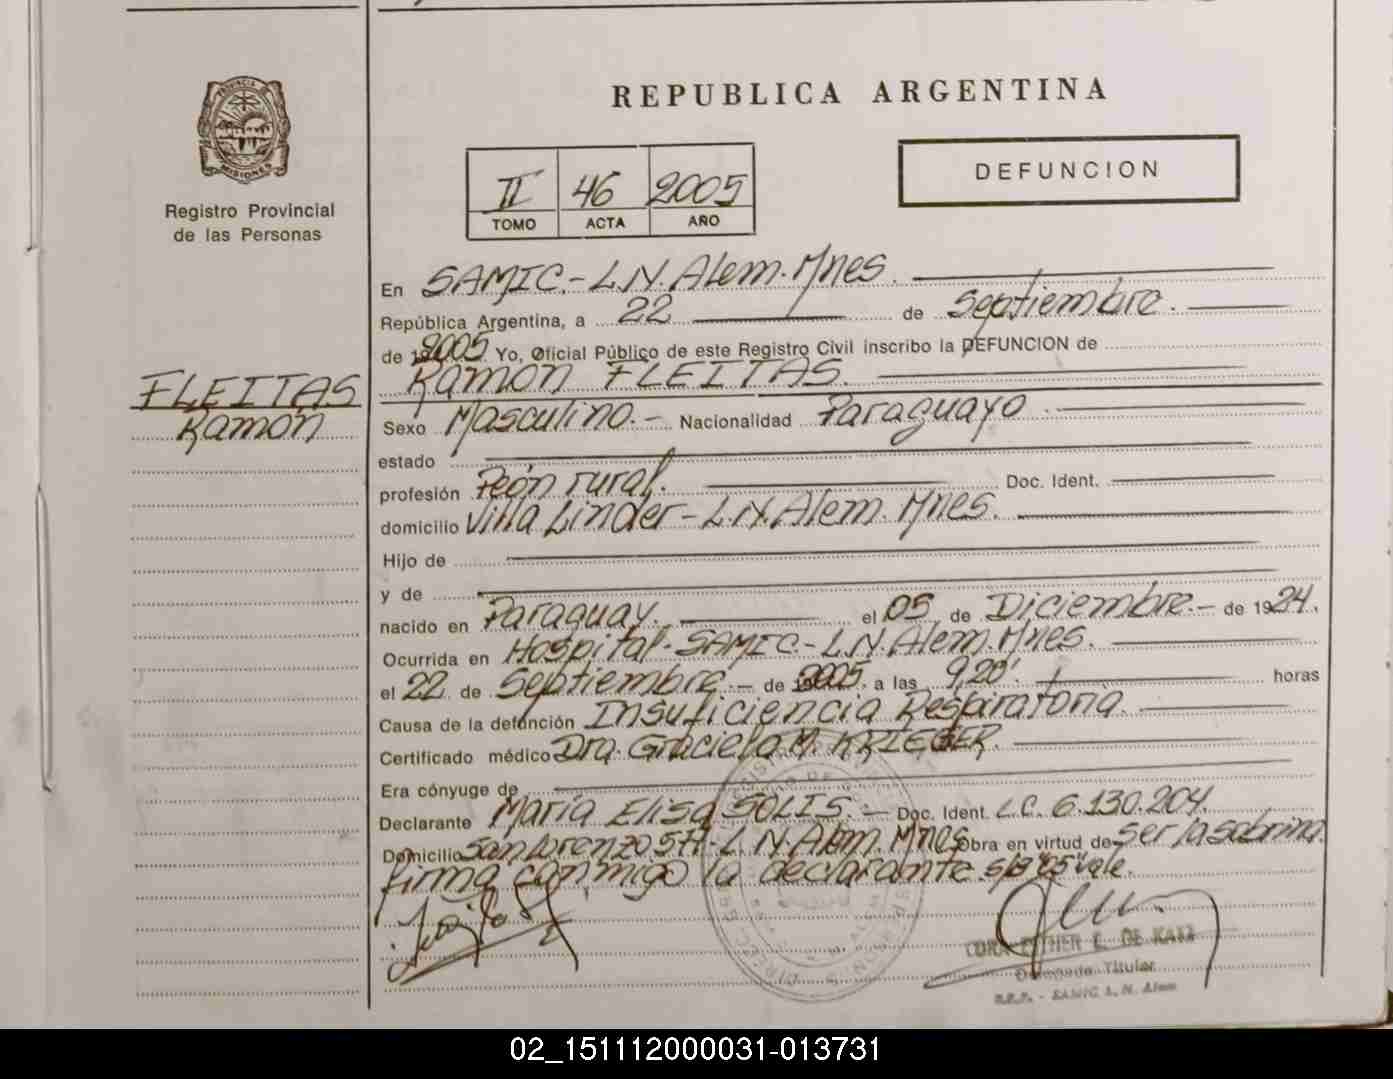 PROVINCIA DE
MISIONES
Registro Provincial
de las Personas
FLEITAS
Ramón
REPUBLICA ARGENTINA
II 46 2005
TOMO ACTA AÑO
DEFUNCION
En SAMIC.-L.N.Alem.Mnes.
República Argentina, a 22 de Septiembre.
de 2005 Yo, Oficial Público de este Registro Civil inscribo la DEFUNCION de
Ramón FLEITAS.
Sexo Masculino.- Nacionalidad Paraguayo.
estado
profesión Peón rural. Doc. Ident.
domicilio Villa Linder-L.N.Alem.Mnes.
Hijo de
y de
nacido en Paraguay. el 05 de Diciembre.- de 1924.
Ocurrida en Hospital-SAMIC.-L.N.Alem.Mnes.
el 22 de Septiembre.- de 2005. a las 9,20'. horas
Causa de la defunción Insuficiencia Respiratoria.
Certificado médico Dra. Graciela M. KRIEGER.
Era cónyuge de
Declarante María Elisa SOLIS.- Doc. Ident. L.C. 6.130.204.
Domicilio San Lorenzo 577-L.N.Alem.Mnes Obra en virtud de Ser la sobrina.
firma conmigo la declarante. s/r "05" vale.
ESTHER E. DE KATZ
Delegada Titular
R.P.P. - SAMIC L. N. Alem
02_151112000031-013731